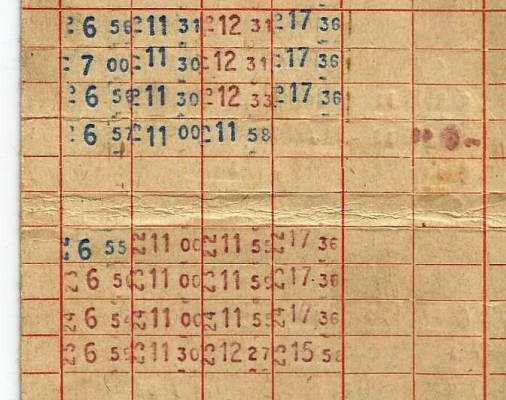 6 56 11 31 12 31 17 36
7 00 11 30 12 31 17 36
6 56 11 30 12 33 17 36
6 57 11 00 11 58
6 55 11 00 11 55 17 36
6 56 11 00 11 56 17 36
24 6 54 24 11 00 24 11 55 24 17 36
6 55 11 30 12 27 15 58